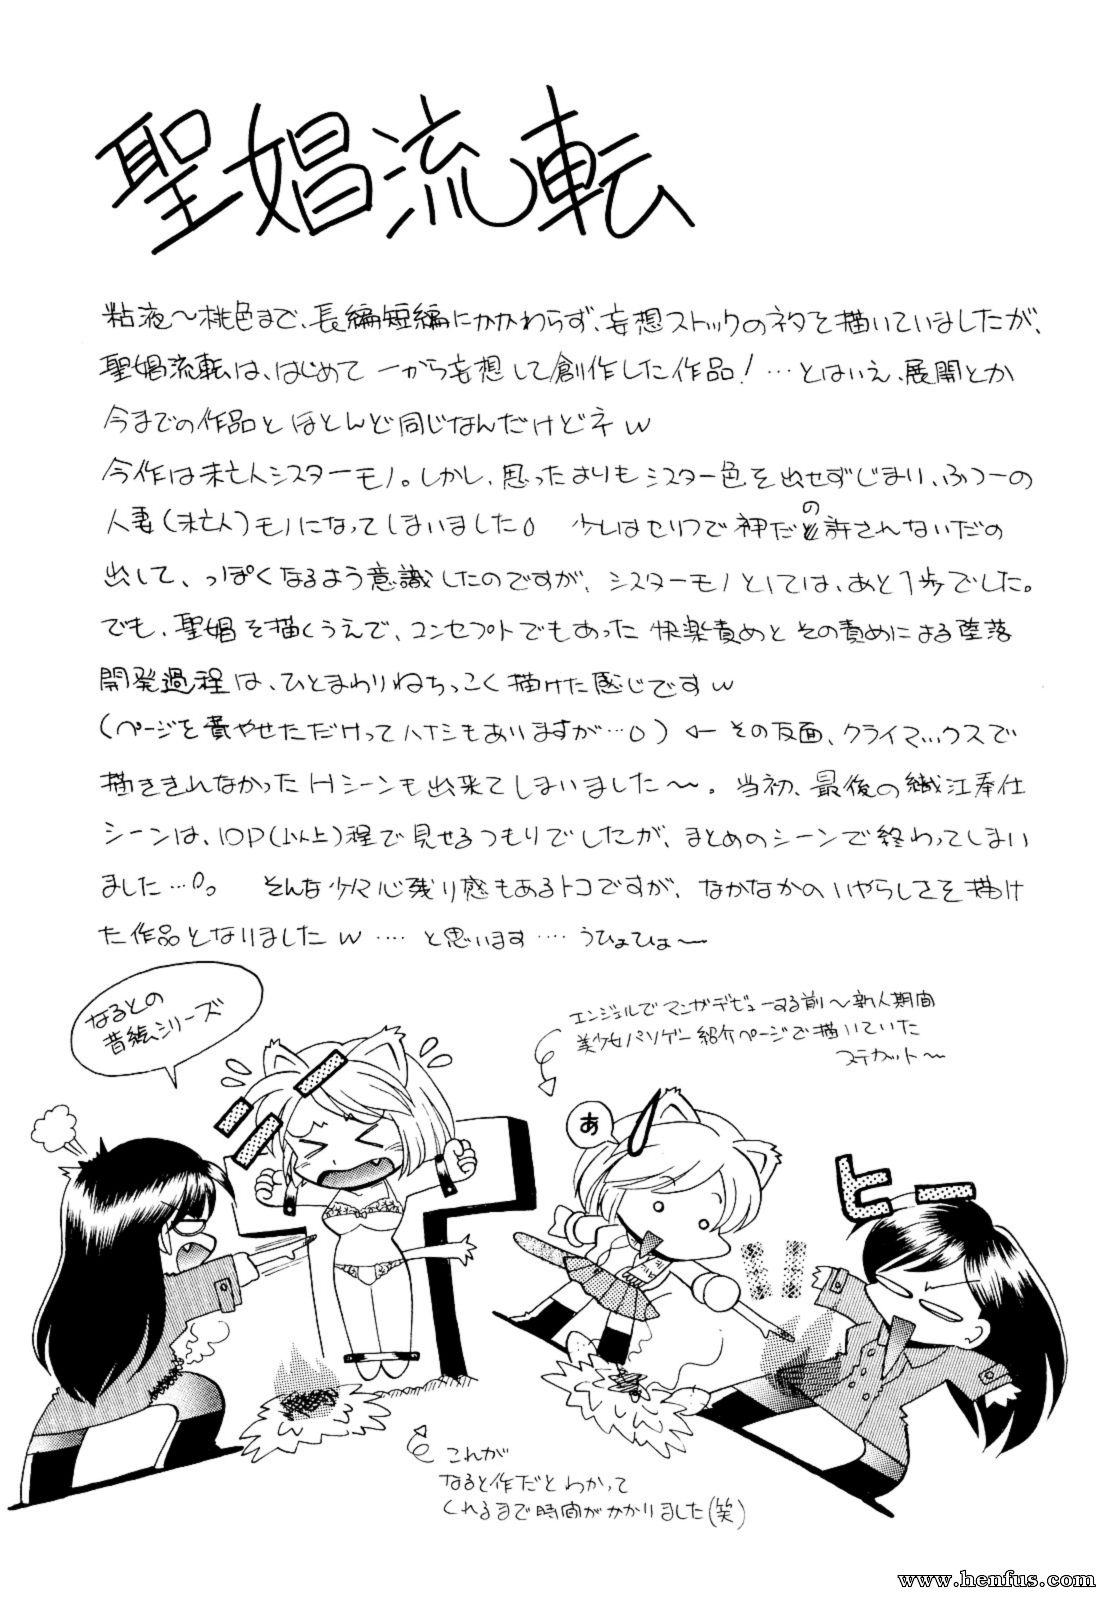 聖娼流転
粘液～桃色まで、長編短編にかかわらず、妄想ストックのネタを描いていましたが、
聖娼流転は、はじめて一から妄想して創作した作品！…とはいえ、展開とか
今までの作品とほとんど同じなんだけどネw
今作は未亡人シスターモノ。しかし、思ったよりもシスター色を出せずじまい、ふつーの
人妻(未亡人)モノになってしまいました 少しはセリフで神だの許されないだの
出して、っぽくなるよう意識したのですが、シスターモノとしては、あと1歩でした。
でも、聖娼を描くうえで、コンセプトでもあった快楽責めとその責めによる堕落
開発過程は、ひとまわりねちっこく描けた感じですw
(ページを費やせただけってハナシもありますが…)←その反面、クライマックスで
描ききれなかったHシーンも出来てしまいました～。当初、最後の織江奉仕
シーンは、10P(以上)程で見せるつもりでしたが、まとめのシーンで終わってしまい
ました… そんな少々心残り感もあるトコですが、なかなかのいやらしさを描け
た作品となりましたw‥‥と思います‥‥うひょひょ～
なるとの
昔絵シリーズ
エンジェルでマンガデビューする前～新人期間
美少女パソゲー紹介ページで描いていた
ステカット～
あ
ヒー
これが
なると作だとわかって
くれるまで時間がかかりました(笑)
www.henfus.com